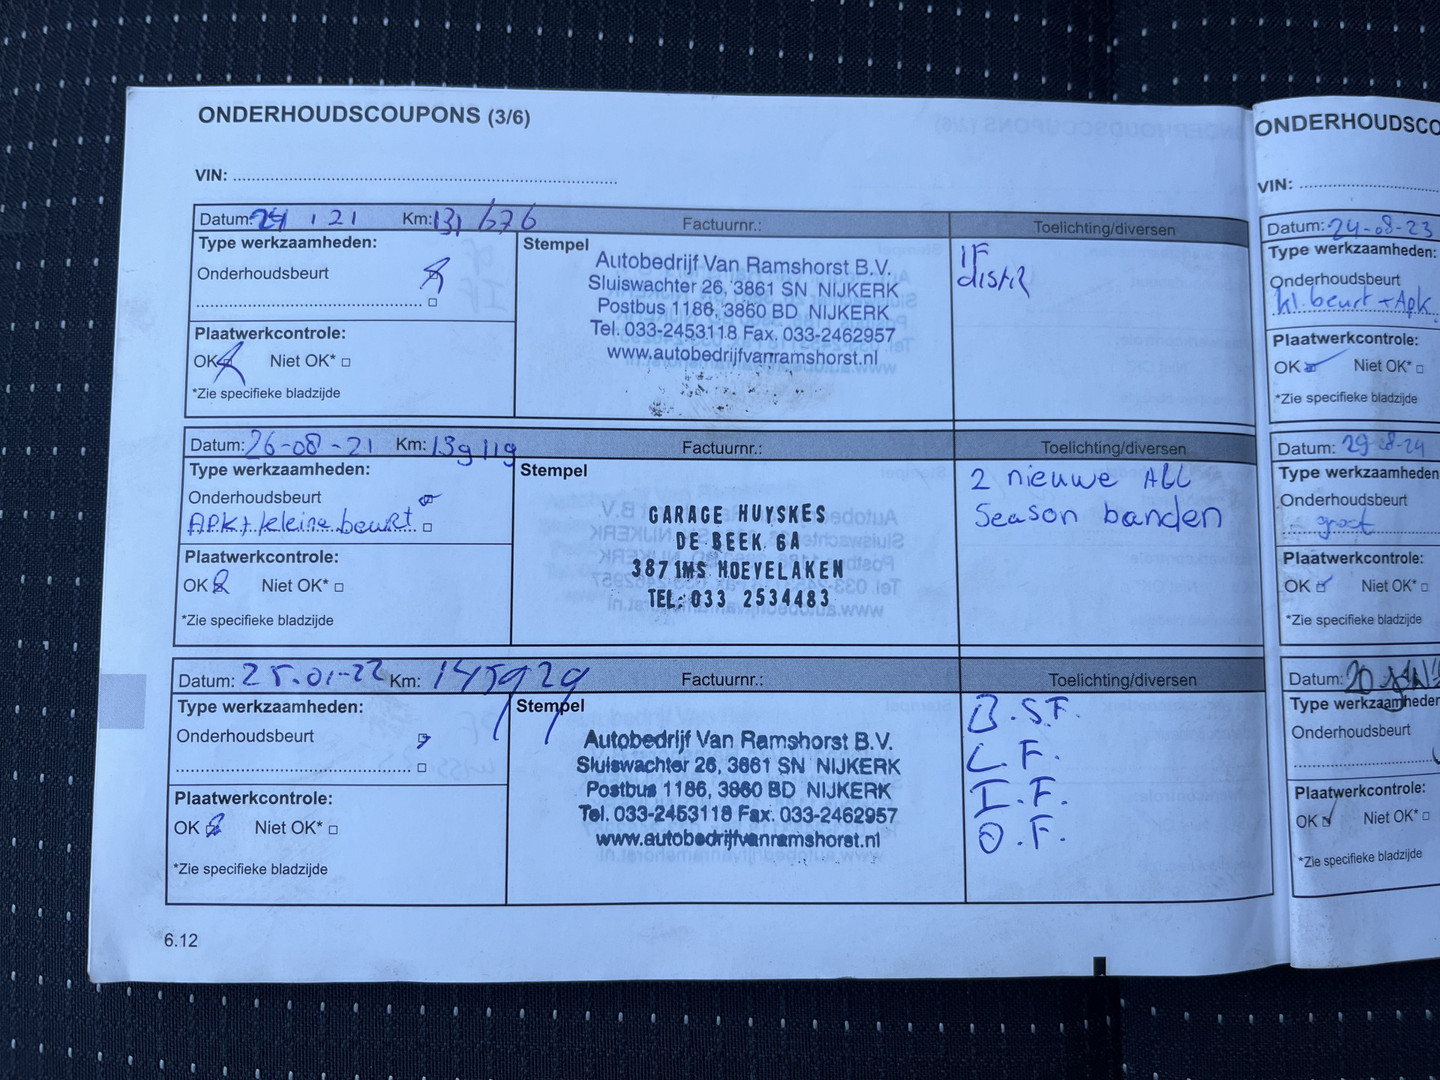 ONDERHOUDSCOUPONS (3/6)
VIN:
Datum: 1 21 Km: 131 676 Factuurnr.: Toelichting/diversen
Type werkzaamheden:
Onderhoudsbeurt
Plaatwerkcontrole:
OK Niet OK*
*Zie specifieke bladzijde
Stempel
Autobedrijf Van Ramshorst B.V.
Sluiswachter 26, 3861 SN NIJKERK
Postbus 1186, 3860 BD NIJKERK
Tel. 033-2453118 Fax. 033-2462957
www.autobedrijfvanramshorst.nl
IF
Datum: 26-08-21 Km: 139119 Factuurnr.: Toelichting/diversen
Type werkzaamheden:
Onderhoudsbeurt
APK + kleine beurt
Plaatwerkcontrole:
OK Niet OK*
*Zie specifieke bladzijde
Stempel
GARAGE HUYSKES
DE BEEK 6A
3871MS HOEVELAKEN
TEL: 033 2534483
2 nieuwe ALL
Season banden
Datum: 25.01-22 Km: 145929 Factuurnr.: Toelichting/diversen
Type werkzaamheden:
Onderhoudsbeurt
Plaatwerkcontrole:
OK Niet OK*
*Zie specifieke bladzijde
Stempel
Autobedrijf Van Ramshorst B.V.
Sluiswachter 26, 3861 SN NIJKERK
Postbus 1186, 3860 BD NIJKERK
Tel. 033-2453118 Fax. 033-2462957
www.autobedrijfvanramshorst.nl
B.S.F.
L.F.
I.F.
O.F.
6.12
ONDERHOUDSCO
VIN:
Datum: 24-08-23
Type werkzaamheden:
Onderhoudsbeurt
kl. beurt + Apk
Plaatwerkcontrole:
OK Niet OK*
*Zie specifieke bladzijde
Datum: 29-8-24
Type werkzaamheden
Onderhoudsbeurt
groot
Plaatwerkcontrole:
OK Niet OK*
*Zie specifieke bladzijde
Datum: 20
Type werkzaamheden
Onderhoudsbeurt
Plaatwerkcontrole:
OK Niet OK*
*Zie specifieke bladzijde